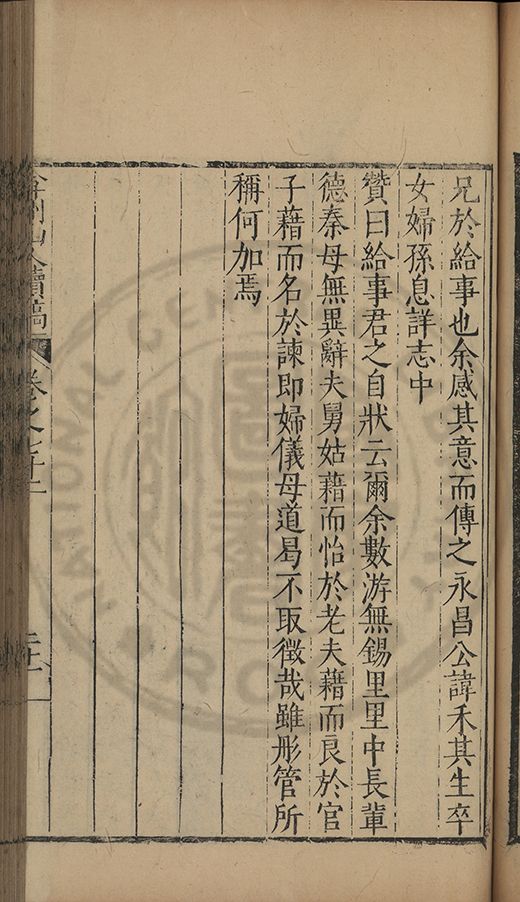 兄於給事也余感其意而傳之永昌公諱禾其生卒
女婦孫息詳志中
贊曰給事君之自狀云爾余數游無錫里里中長輩
德秦母無異辭夫舅姑藉而怡於老夫藉而良於官
子藉而名於諫即婦儀母道曷不取徵哉雖彤管所
稱何加焉
山人續稿
卷之七十二